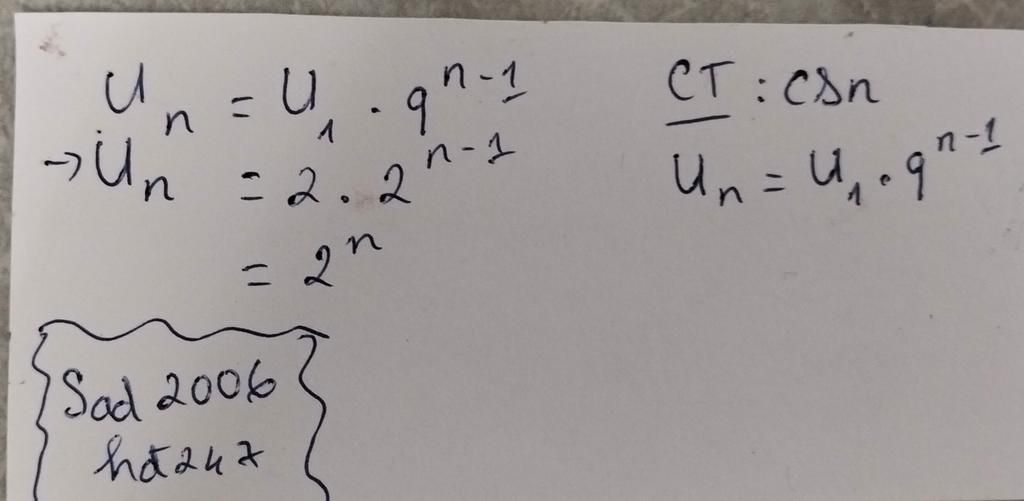 Uₙ = U₁ . q^(n-1)
→ Uₙ = 2 . 2^(n-1)
= 2^n
CT : CSn
Uₙ = U₁ . q^(n-1)
Sad 2006
hđ247